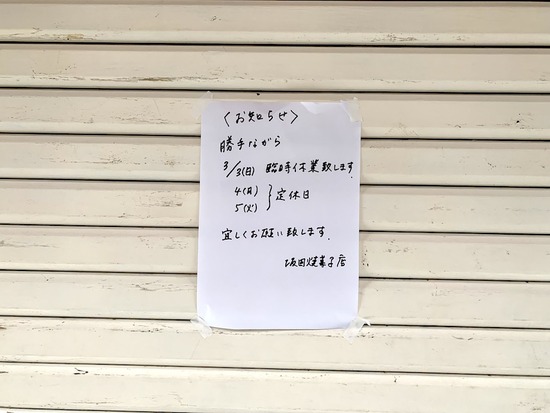 〈お知らせ〉
勝手ながら
3/3(日) 臨時休業致します.
4(月) } 定休日
5(火)
宜しくお願い致します.
坂田焼菓子店